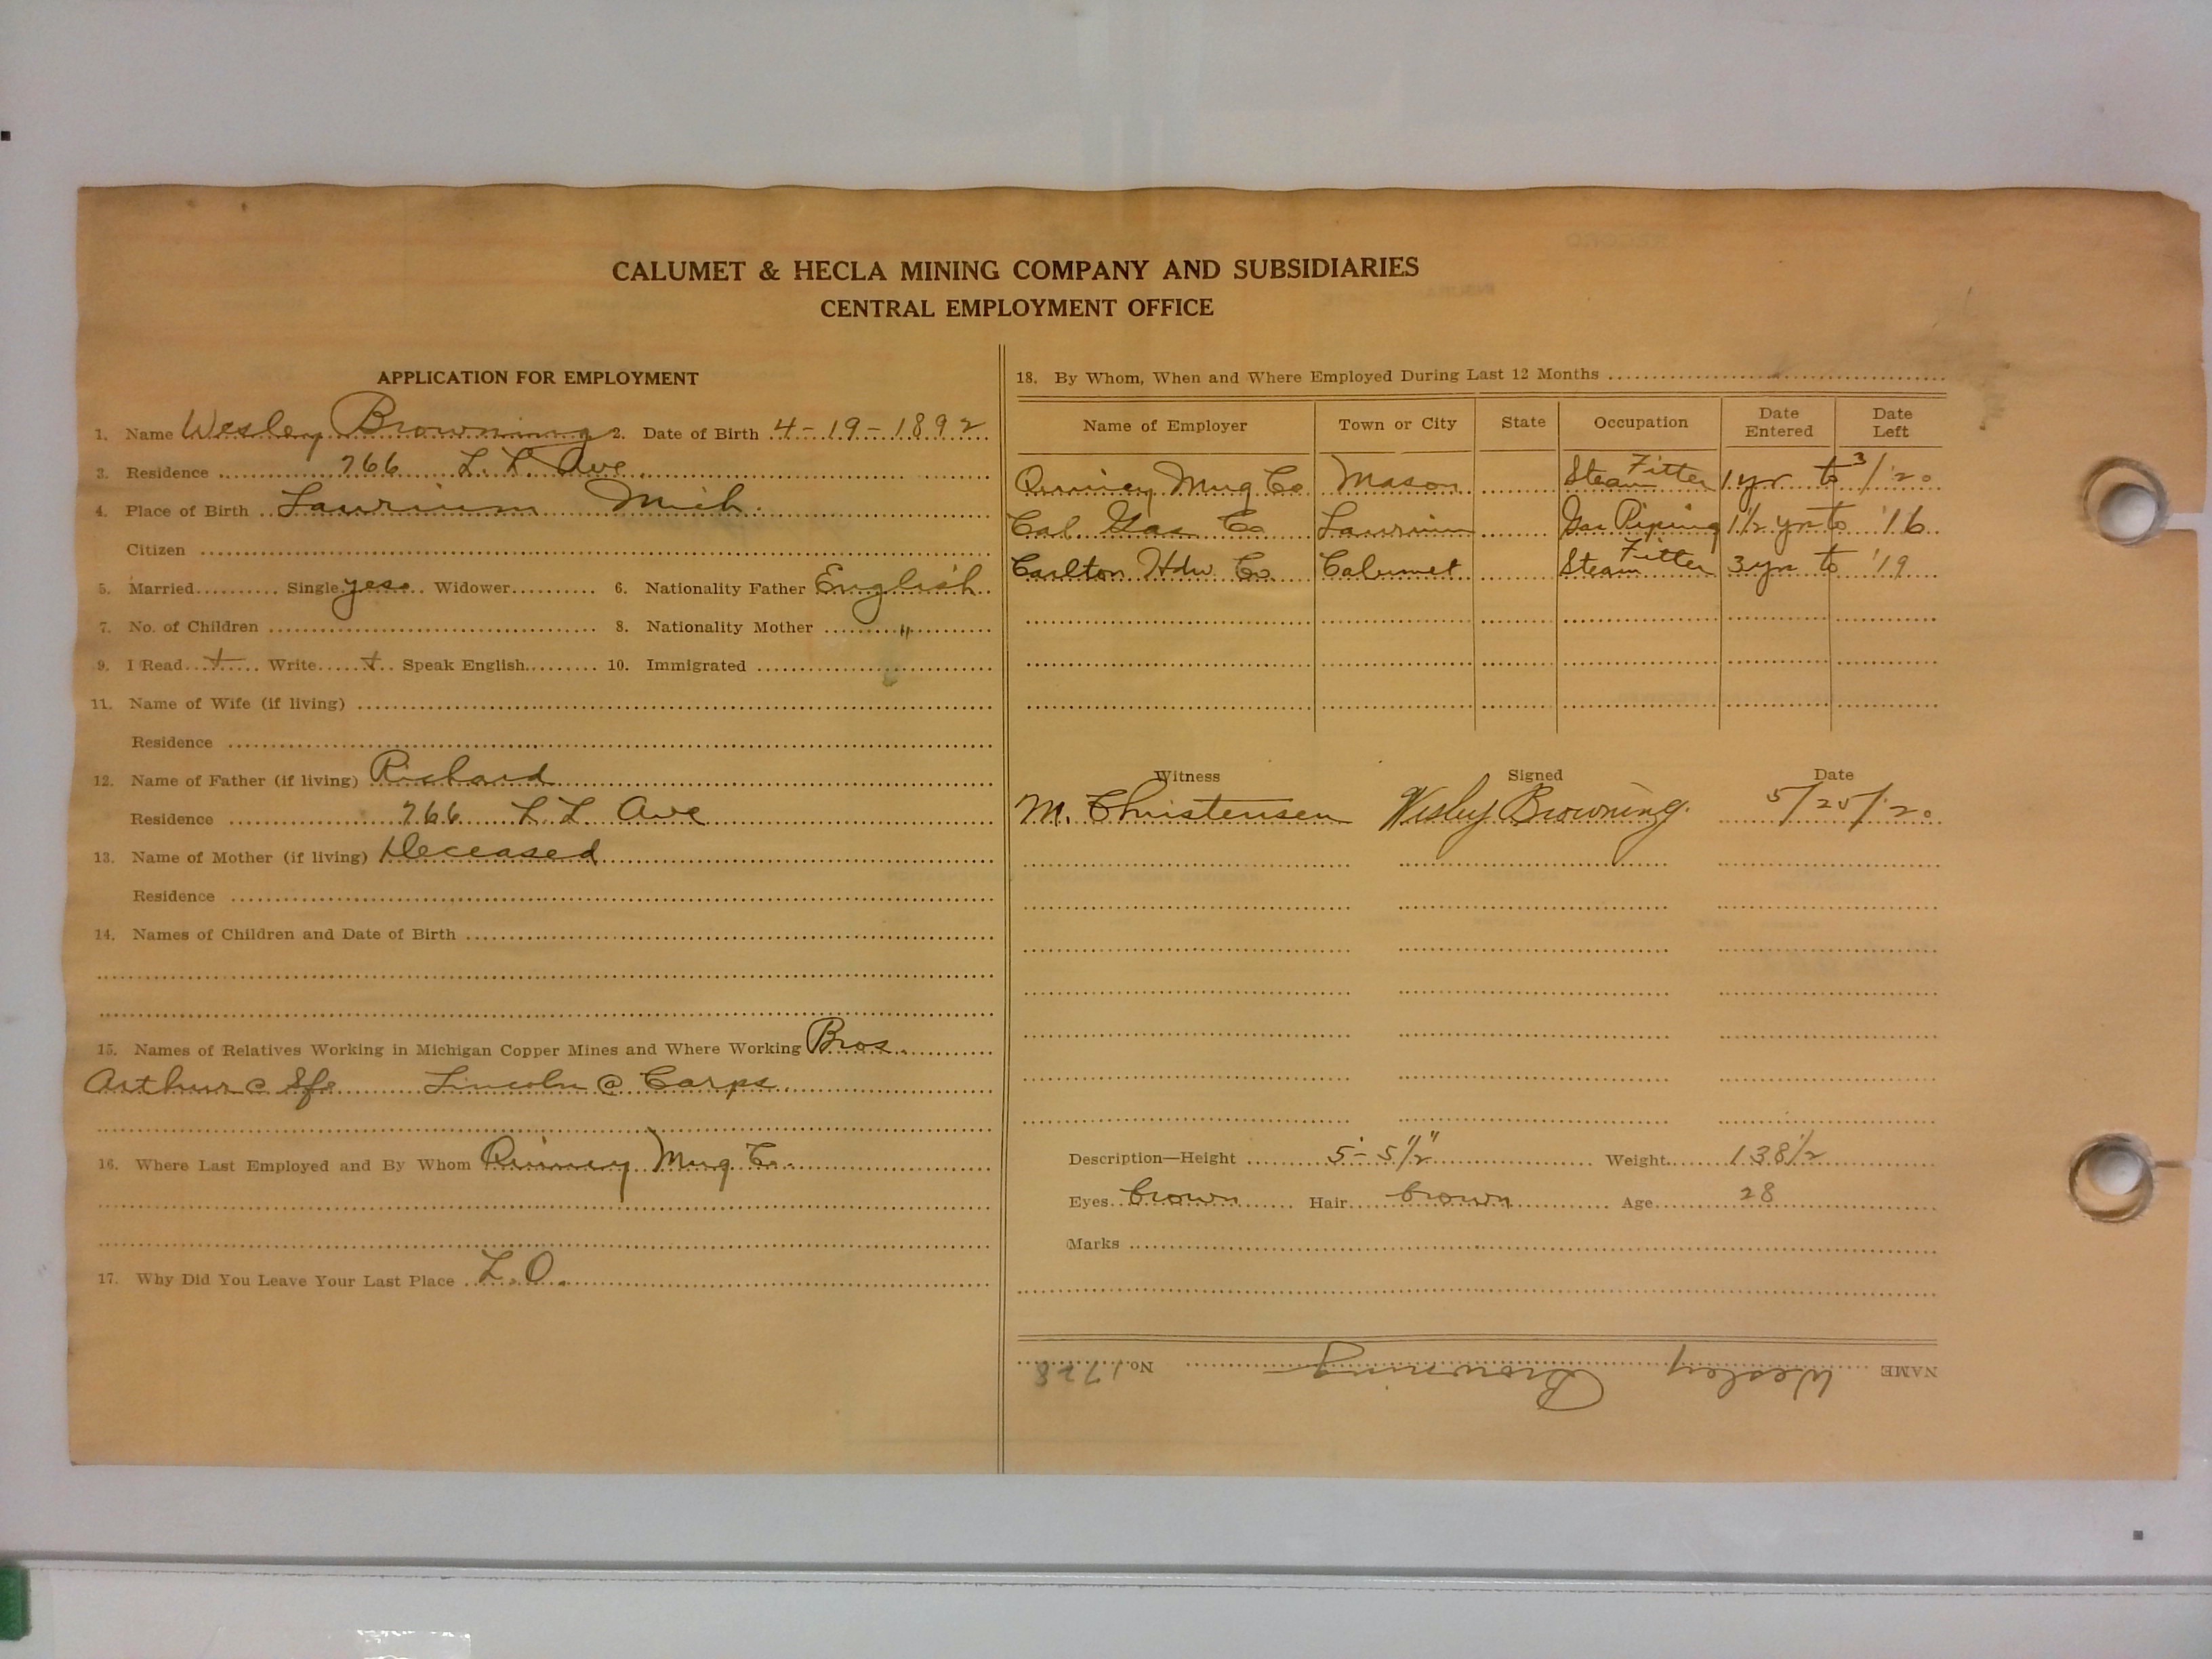 CALUMET & HECLA MINING COMPANY AND SUBSIDIARIES
CENTRAL EMPLOYMENT OFFICE
APPLICATION FOR EMPLOYMENT
1. Name Wesley Browning 2. Date of Birth 4-19-1892
3. Residence 766 L. L. Ave
4. Place of Birth Laurium Mich.
Citizen
5. Married Single yes Widower 6. Nationality Father English
7. No. of Children 8. Nationality Mother "
9. I Read + Write + Speak English 10. Immigrated
11. Name of Wife (if living)
Residence
12. Name of Father (if living) Richard
Residence 766 L L Ave
13. Name of Mother (if living) Deceased
Residence
14. Names of Children and Date of Birth
15. Names of Relatives Working in Michigan Copper Mines and Where Working Bros.
Arthur @ Lincoln @ Carps.
16. Where Last Employed and By Whom Quincy Mng Co.
17. Why Did You Leave Your Last Place L.O.
18. By Whom, When and Where Employed During Last 12 Months
Name of Employer Town or City State Occupation Date Entered Date Left
Quincy Mng Co Mason Steam Fitter 1 yr to 3/20
Cal. Gas Co Laurium Gas Piping 1 1/2 yr to '16
Carlton Hdw. Co. Calumet Steam Fitter 3 yr to '19
Witness Signed Date
M. Christensen Wesley Browning. 5/25/20
Description—Height 5'-5 1/2" Weight 138 1/2
Eyes brown Hair brown Age 28
Marks
NAME Wesley Browning No. 1728